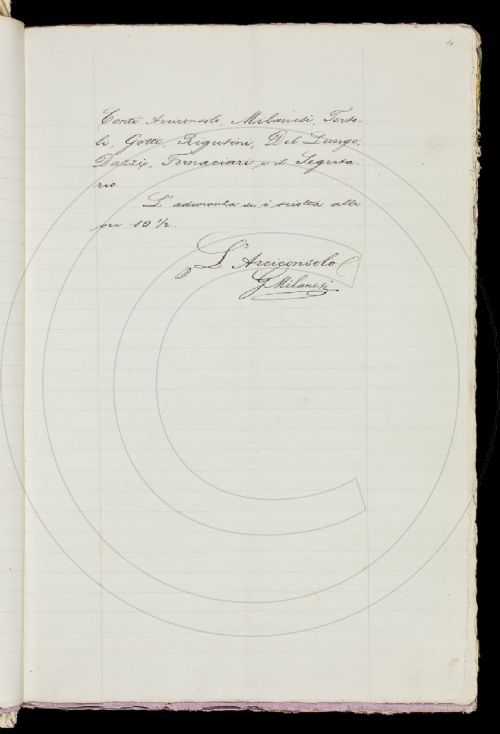 4
Conti Arciconsolo Milanesi, Tortoli,
Gotti, Rigutini, Del Lungo,
Dazzi, Fornaciari e il Segreta
rio
L'adunanza si è sciolta alle
ore 10 ½.
L'Arciconsolo
G Milanesi